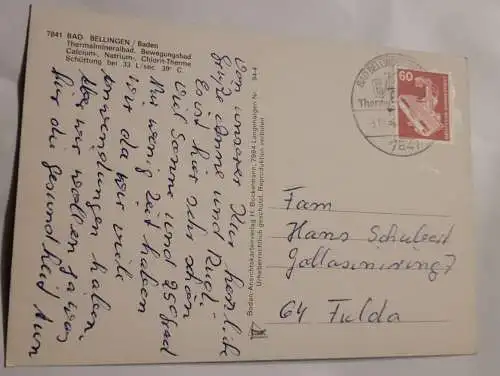 7841 BAD BELLINGEN / Baden
Thermalmineralbad, Bewegungsbad
Calcium-, Natrium-, Chlorit-Therme
Schüttung bei 33 L/sec. 39° C.
Von unserer Kur herzliche
Grüße Anne und Rudi
Es ist hier sehr schön
viel Sonne und 25 Grad
Nur wenig Zeit haben
wir da wir viele
Anwendungen haben.
Aber wir wollen ja was
für die Gesundheit tun
Baden-Ansichtskartenverlag H. Bockemann, 7894 Langenhagen Nr. 84-4
Urheberrechtlich geschützt. Reproduktion verboten
BAD BELLINGEN
Therm
7841
60
Fam
Hans Schuberit
Gallasiniring 7
64 Fulda